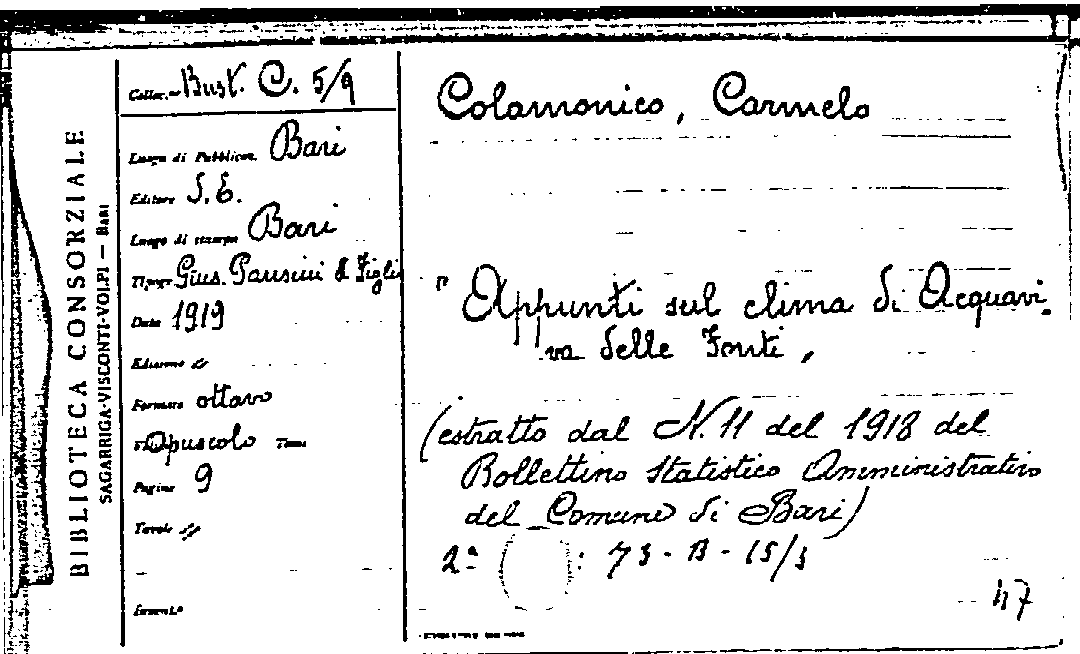 BIBLIOTECA CONSORZIALE
SAGARRIGA-VISCONTI-VOLPI — BARI
Colloc. Bust. C. 5/9
Luogo di Pubblicaz. Bari
Editore S. E.
Luogo di stampa Bari
Tipogr. Gius. Pansini & Figli
Data 1919
Edizione "
Formato ottavo
Opuscolo Tomo
Pagine 9
Tavole "
Invent.°
Colamonico, Carmelo
" Appunti sul clima di Acquavi-
va delle Fonti,
(estratto dal N. 11 del 1918 del
Bollettino Statistico Amministrativo
del Comune di Bari)
2ª : 73 - B - 15/3
47